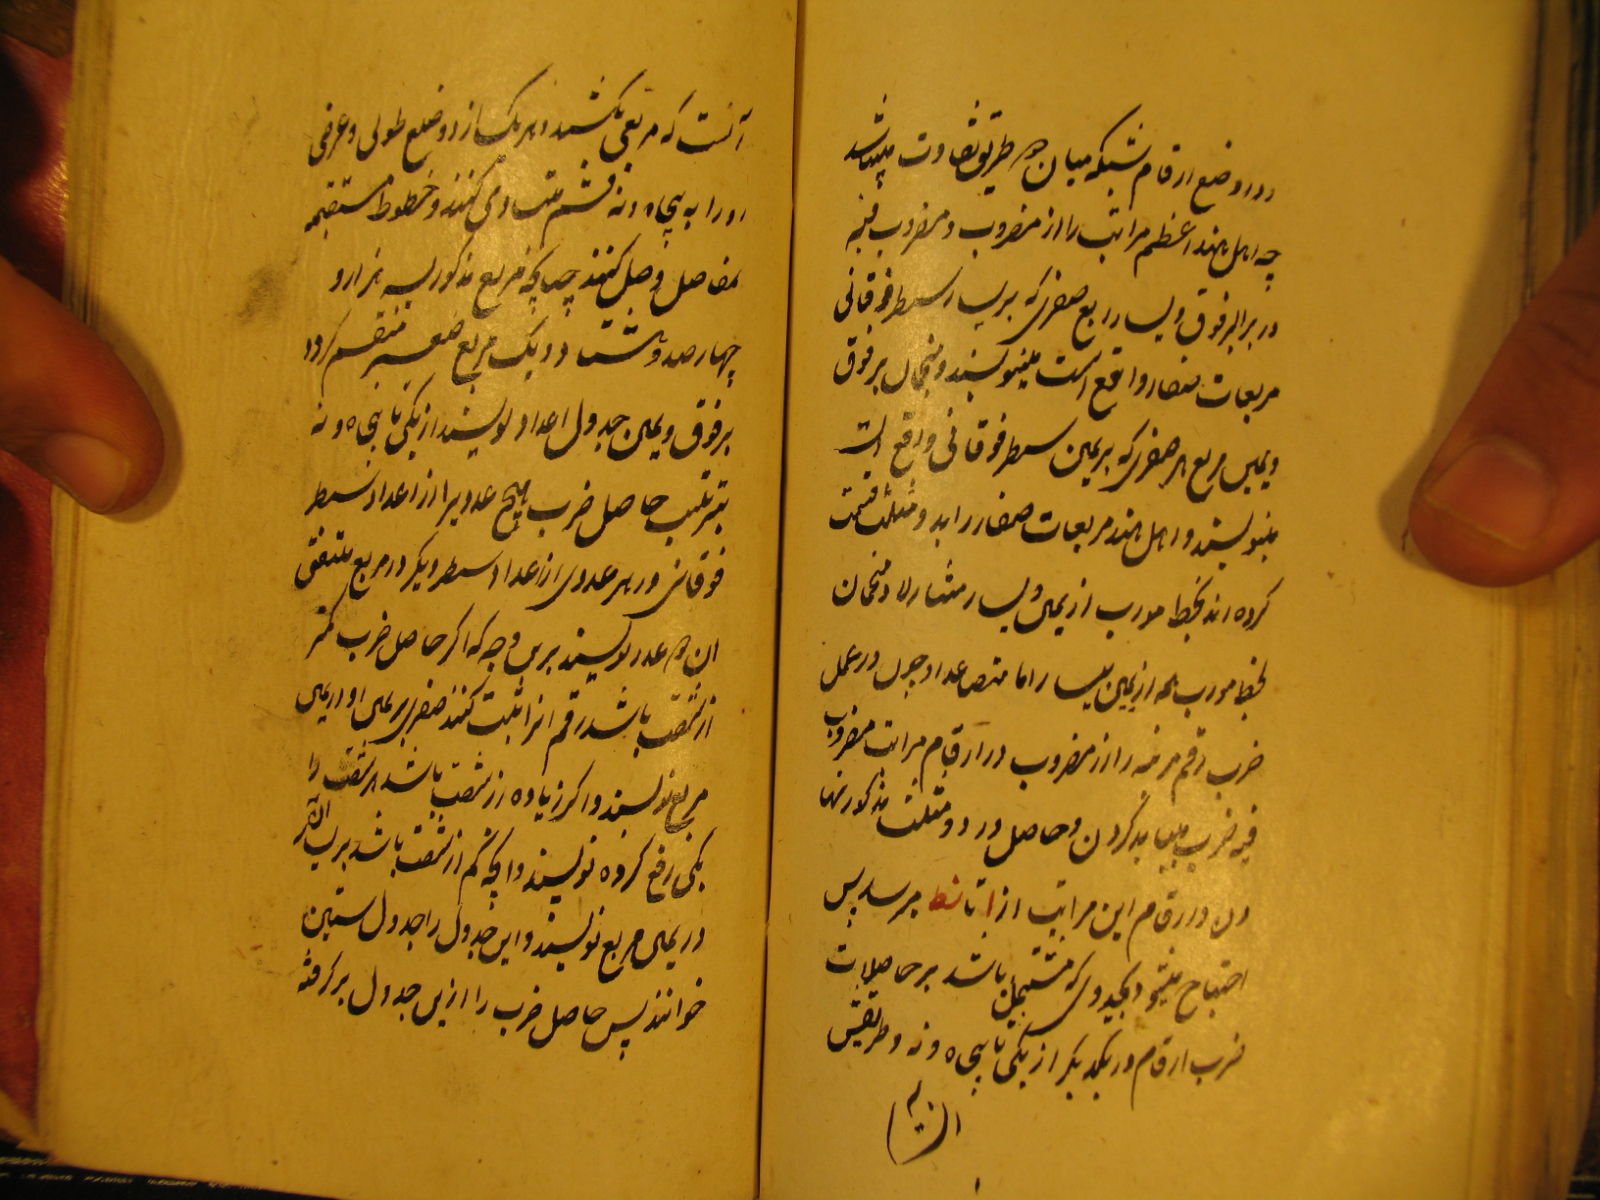 و در وضع ارقام شبکه میان دو طریق تفاوت میباشد
چه اهل هند اعظم مراتب را از مضروب و مضروب فیه
در برابر فوق و یسار مربع صغری که بر یسار سطر فوقانی
مربعات صغار واقع است مینویسند و منجمان بر فوق
و یمین مربع هر صغری که بر یمین سطر فوقانی واقع است
مینویسند و اهل هند مربعات صغار را بدو مثلث قسمت
کرده اند بخط مورب از یمین و یسار متنازلا و منجمان
بخط مورب که از یمین بیسار اما متصاعدا و چون در عمل
ضرب رقم مرتبه را از مضروب در ارقام مراتب مضروب
فیه ضرب میباید کردن و حاصل در دو مثلث مذکور نهادن
و ارقام این مراتب از ا تا نط میرسد پس
احتیاج میشود بجدولی که مشتمل باشد بر حاصلات
ضرب ارقام در یکدیگر از یکی تا پنجاه و نه و طریقش
آنست که
آنست که مربعی بکشند و هر یک از دو ضلع طولی و عرضی
او را به پنجاه و نه قسم متساوی کنند و خطوط مستقیمه
بمفاصل وصل کنند چنانچه مربع مذکور بسه هزار و
چهارصد و هشتاد و یک مربع صغیر منقسم گردد
بر فوق و یمین جدول اعداد نویسند از یکی تا پنجاه و نه
بترتیب حاصل ضرب هیچ عددیرا از اعداد سطر
فوقانی در هر عددی از اعداد سطر دیگر در مربع ملتقی
ان دو عدد نویسند برین وجه که اگر حاصل ضرب کمتر
از شصت باشد رقم انرا ثبت کنند صفری بر یمین او در یمین
مربع نویسند و اگر زیاده از شصت باشد هر شصت را
یکی رفع کرده نویسند و انچه کم از شصت باشد بر یسار
در یمین مربع نویسند و این جدول را جدول ستین
خوانند پس حاصل ضرب را ازین جدول بر گرفته